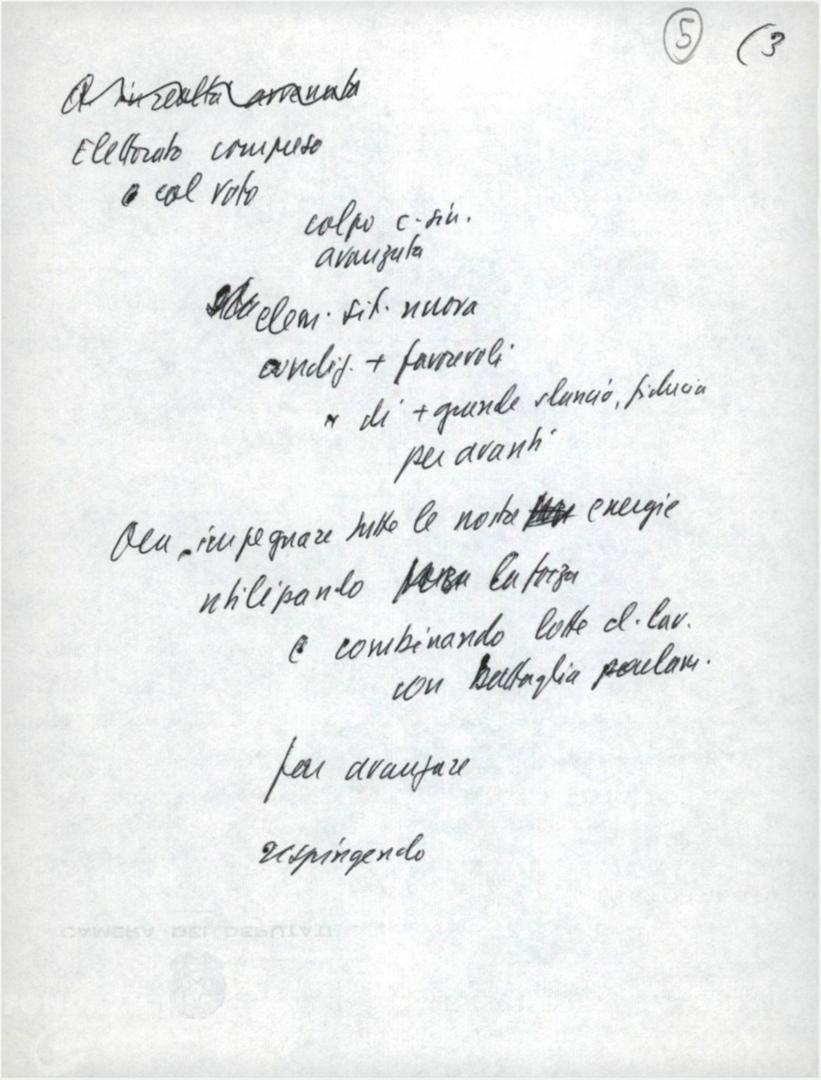 5 (3
Elettorato compreso
e col voto
colpo c-sin.
avanzata
elem. sit. nuova
condiz. + favorevoli
di + grande slancio, fiducia
per avanti
Ora impegnare tutte le nostre energie
utilizzando la forza
e combinando lotte d. lav.
con battaglia parlam.
per avanzare
respingendo
CAMERA DEI DEPUTATI